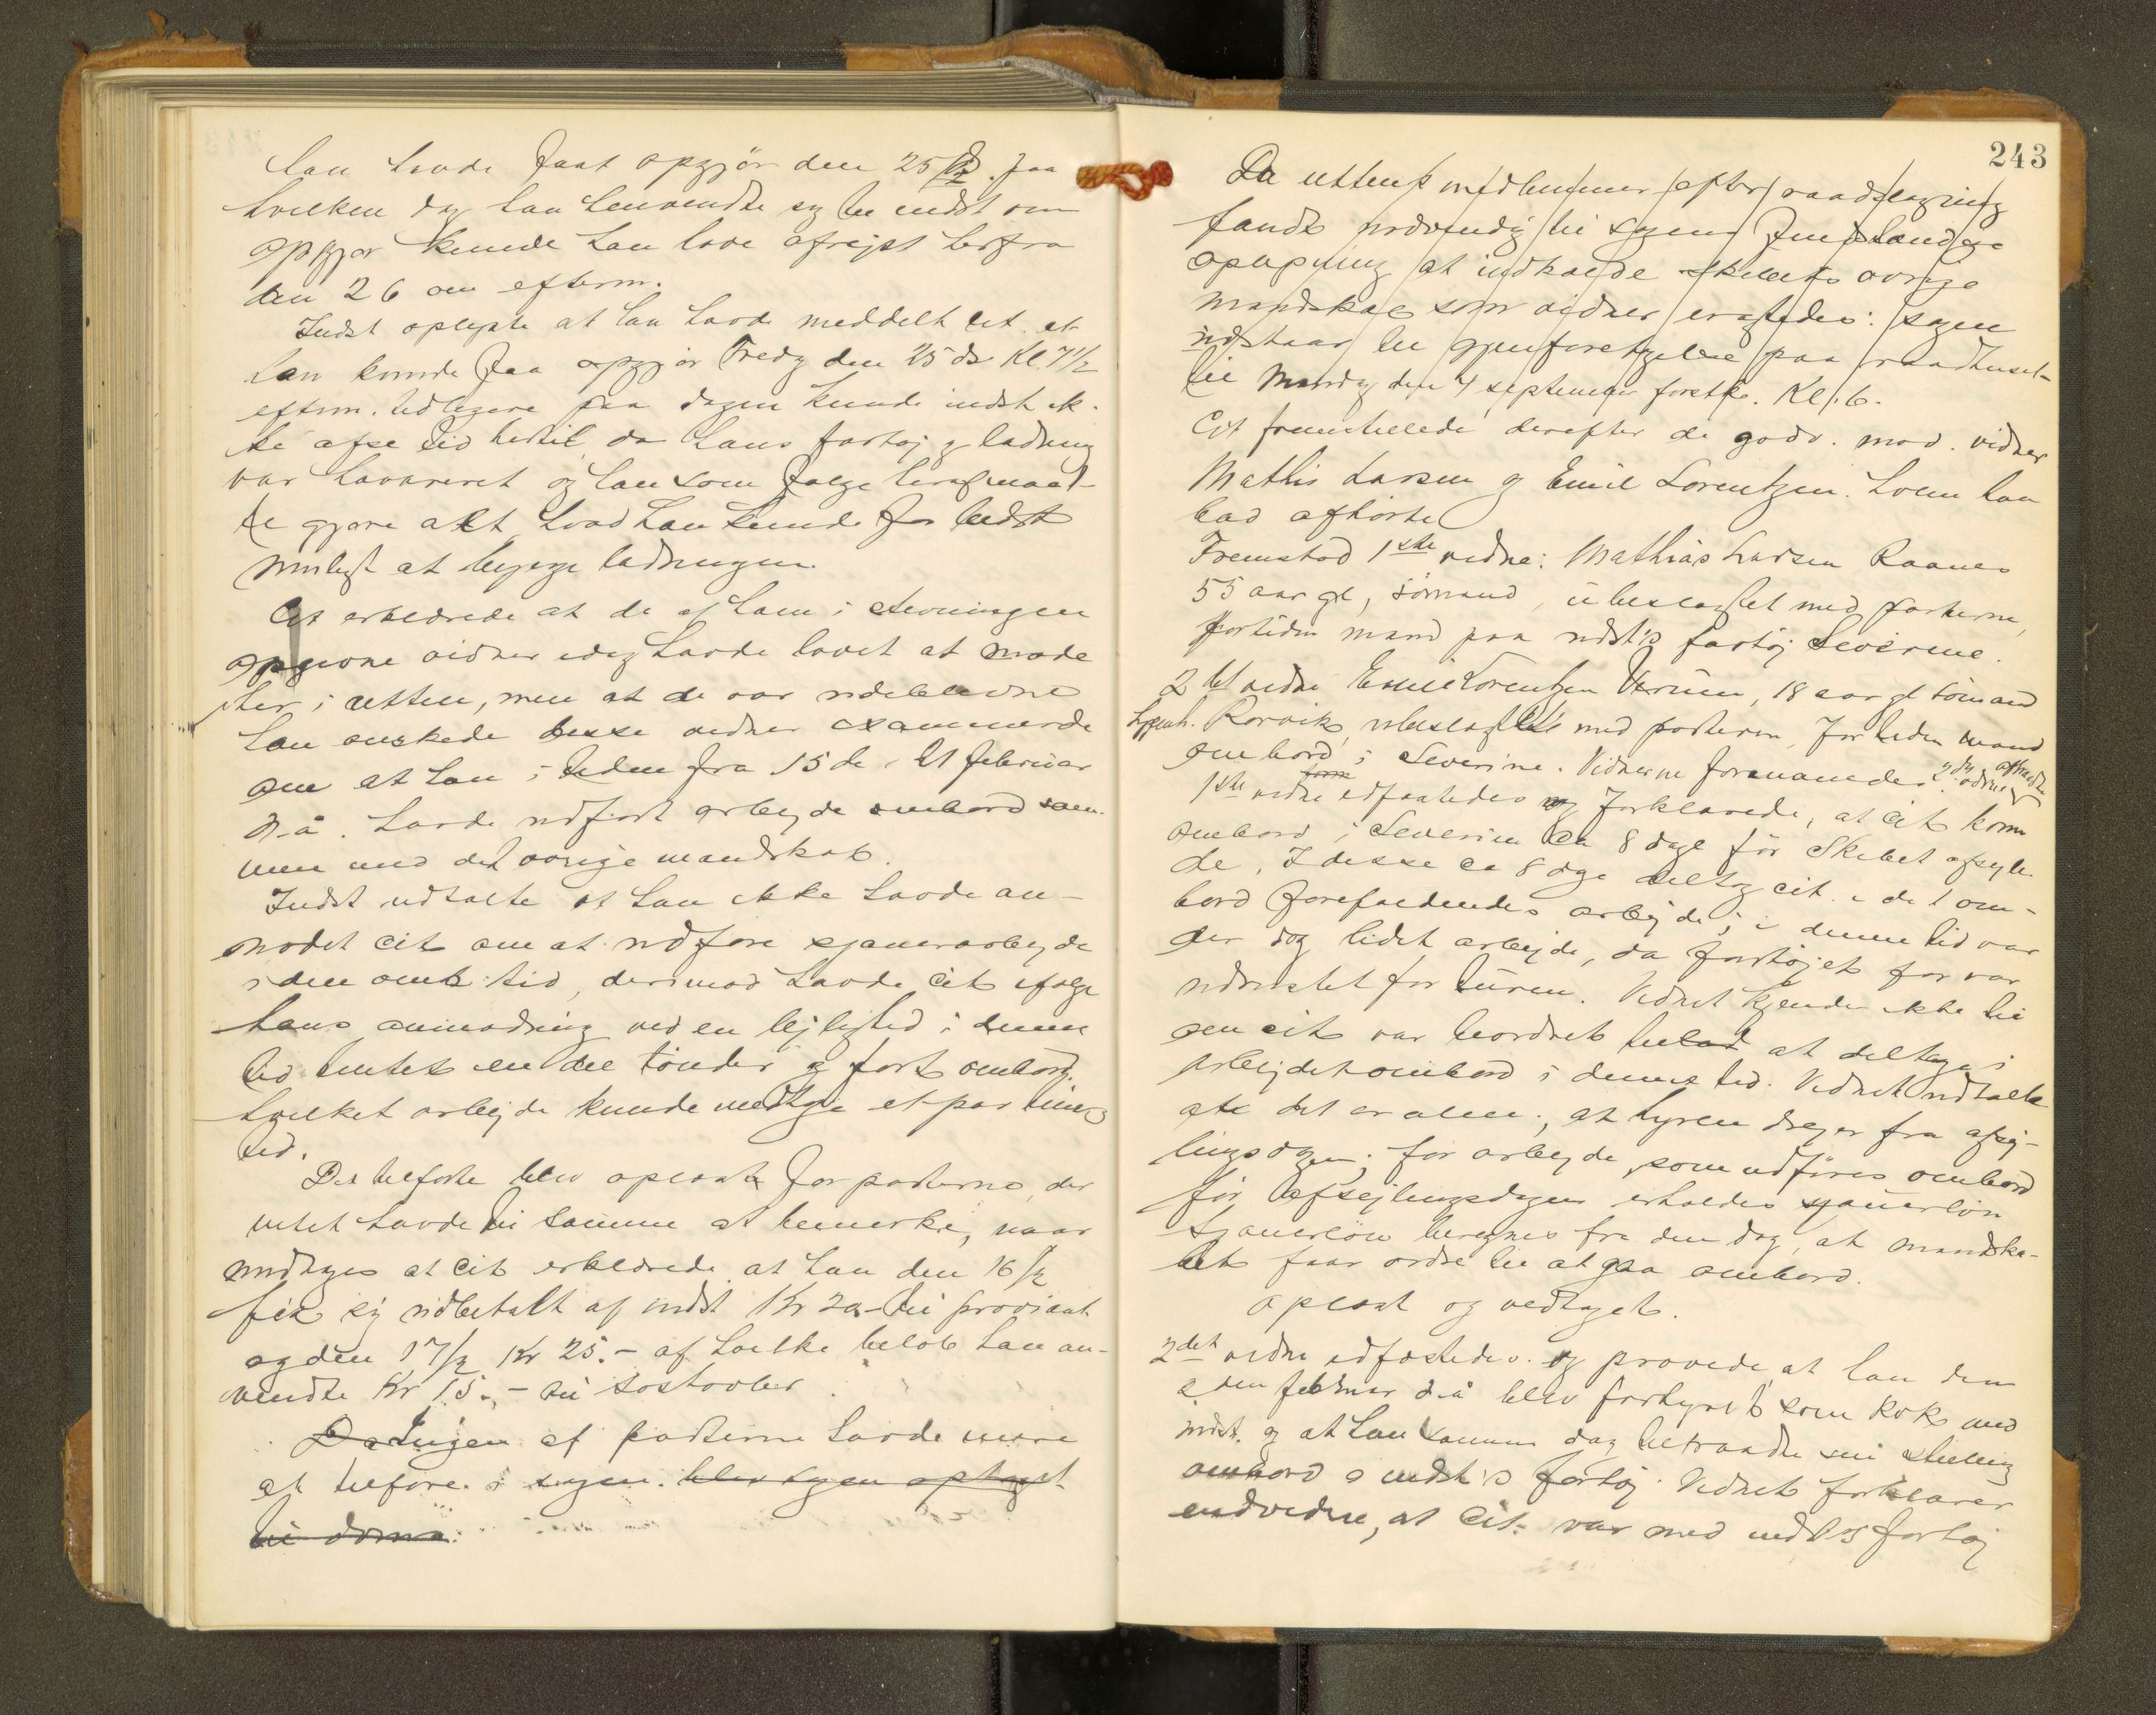 han havde faat opgjör den 25/2. paa
hvilken dag han henvendte sig til indst om
opgjør kunde han have afrejst herfra
den 26 om efterm.
Indst oplyste at han havde meddelt cit. at
han kunde faa opgjør Fredag den 25 ds Kl. 7½
efterm. Tidligere paa dagen kunde indst ik-
ke afse tid hertil, da hans fartøj og ladning
var havareret og han som følge heraf maat-
te gjøre alt hvad han kunde for bedst
muligt at bjerge ladningen.
Cit erklærede at de af ham i stevningen
opgivne vidner idag havde lovet at møde
her i retten, men at de var udeblevne
han ønskede disse vidner examinerede
om at han i tiden fra 15de - 21 februar
d.å. havde udført arbejde ombord sam-
men med det øvrige mandskab.
Indst udtalte at han ikke havde an-
modet cit om at udføre sjauerarbejde
i den omh. tid, derimod havde cit ifølge
hans anmodning ved en lejlighed i denne
tid hentet en del tønder og ført ombord,
hvilket arbejde kunde medtage et par times
tid.
Det tilførte blev oplæst for parterne, der
intet havde til samme at bemerke, naar
undtages at cit erklærede at han den 16/2
fik sig udbetalt af indst Kr 20.- til proviant
og den 17/2 Kr 25.- af hvilke beløb han an-
vendte Kr 15.- til søstøvler.
Da Ingen af parterne havde mere
at tilføre i sagen. blev sagen optaget
til doms.
243
Da rettens medlemmer efter raadslagning
fandt nødvendig til sagens fuldstændige
oplysning at indkalde skibets øvrige
mandskab som vidner eragtedes: Sagen
udstaar til gjenforetagelse paa raadhuset
til Mandag den 4 september førstk. Kl. 6.
Cit fremstillede derefter de godv. mød. vidner
Mathis Larsen og Emil Lorentzen. hvem han
bad afhørte
Fremstod 1ste vidne: Mathias Larsen Raanes
55 aar gl, sömand, ubeslægtet med parterne,
fortiden mand paa indst's fartöj Severine.
2det vidne Emil Lorentzen 18 aar gl sömand
hjemh. Rørvik, ubeslægtet med parterne, for tiden mand
ombord i Severine. Vidnerne formanedes. 2det vidne aftraadte
1ste vidne edfæstedes og forklarede, at cit kom
ombord i Severine ca 8 dage før Skibet afsejle-
de. I disse ca 8 dage deltog cit i det om-
bord forefaldendes arbejde; i denne tid var
der dog lidet arbejde, da fartöjet før var
udrustet for turen. Vidnet kjender ikke til
om cit var beordret til at deltage i
arbejdet ombord i denne tid. Vidnet udtalte
at det er alm., at hyren drages fra afsej-
lingsdagen; for arbejde, som udføres ombord
før afsejlingsdagen erholdes sjauerløn
Sjauerløn beregnes fra den dag, at mandska-
bet faar ordre til at gaa ombord.
Oplæst og vedtaget.
2det vidne edfæstedes og provede, at han den
2den februar d.å blev forhyret som kok med
indst. og at han samme dag tiltraadte sin stilling
ombord i indst's fartøj. Vidnet forklarer
endvidere, at Cit. var med indst's fartøj